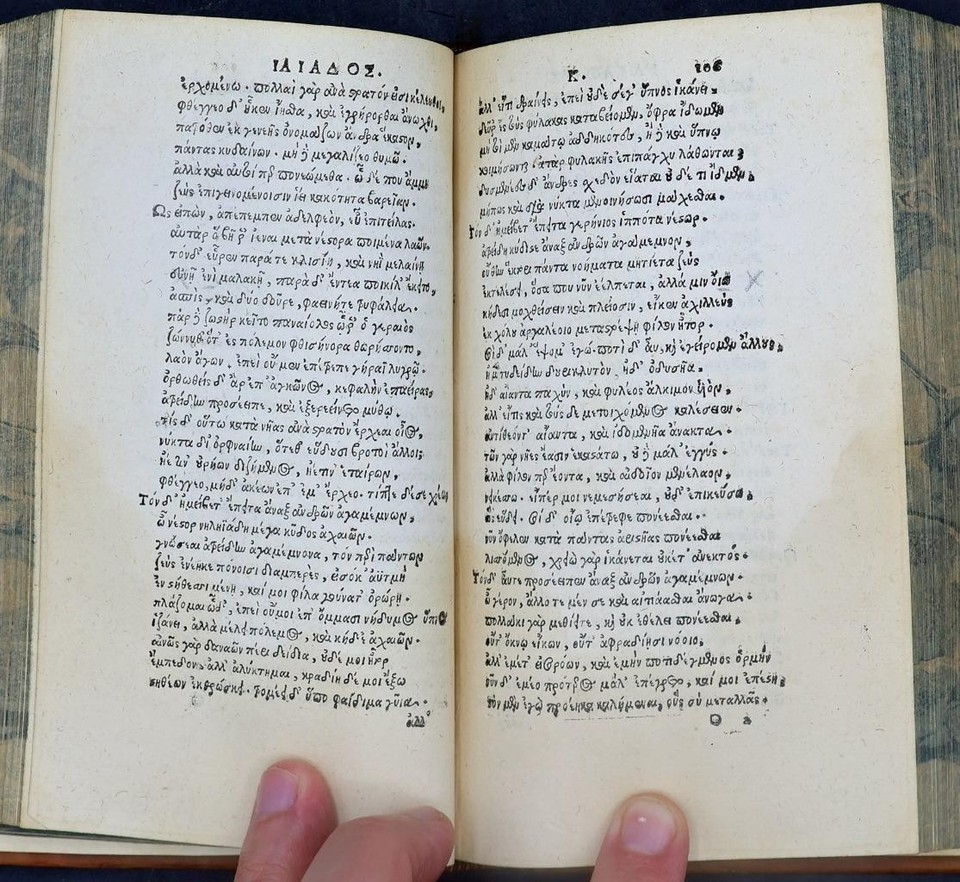 ΙΛΙΑΔΟΣ.
ἐρχομένω. πολλαὶ γὰρ ἀνὰ στρατόν εἰσι κέλευθοι,
φθέγγεο δ' ᾗ κεν ἴῃσθα, καὶ ἐγρήγορθαι ἄνωχθι,
πατρόθεν ἐκ γενεῆς ὀνομάζων ἄνδρα ἕκαστον,
πάντας κυδαίνων. μὴ δὲ μεγαλίζεο θυμῷ.
ἀλλὰ καὶ αὐτοί περ πονεώμεθα. ὧδέ που ἄμμι
ζεὺς ἐπιγεινομένοισιν ἵει κακότητα βαρεῖαν.
Ως εἰπὼν, ἀπέπεμπεν ἀδελφεὸν, εὖ ἐπιτείλας.
αὐτὰρ ὁ βῆ ῥ' ἰέναι μετὰ νέστορα ποιμένα λαῶν.
τὸν δ' εὗρεν παρά τε κλισίῃ, καὶ νηῒ μελαίνῃ
εὐνῇ ἐνὶ μαλακῇ, παρὰ δ' ἔντεα ποικίλ' ἔκειτο,
ἀσπὶς, καὶ δύο δοῦρε, φαεινή τε τρυφάλεια.
πὰρ δὲ ζωστὴρ κεῖτο παναίολος ᾧ ῥ' ὁ γεραιὸς
ζώννυθ' ὅτ' ἐς πόλεμον φθισήνορα θωρήσσοιτο,
λαὸν ἄγων. ἐπεὶ οὐ μὲν ἐπέτρεπε γήραϊ λυγρῷ.
ὀρθωθεὶς δ' ἄρ' ἐπ' ἀγκῶνος, κεφαλὴν ἐπαείρας
ἀτρείδην προσέειπε, καὶ ἐξερεείνετο μύθῳ.
τίς δ' οὕτω κατὰ νῆας ἀνὰ στρατὸν ἔρχεαι οἶος,
νύκτα δι' ὀρφναίην, ὅτε θ' εὕδουσι βροτοὶ ἄλλοι;
ἠέ τιν' οὐρήων διζήμενος, ἤ τιν' ἑταίρων,
φθέγγεο, μηδ' ἀκέων ἐπ' ἔμ' ἔρχεο. τίπτε δέ σε χρεώ;
Τὸν δ' ἠμείβετ' ἔπειτα ἄναξ ἀνδρῶν ἀγαμέμνων,
ὦ νέστορ νηληϊάδη μέγα κῦδος ἀχαιῶν.
γνώσεαι ἀτρείδην ἀγαμέμνονα, τὸν περὶ πάντων
ζεὺς ἐνέηκε πόνοισι διαμπερὲς, εἰσόκ' ἀϋτμὴ
ἐν στήθεσσι μένῃ, καί μοι φίλα γούνατ' ὀρώρῃ.
πλάζομαι ὧδ', ἐπεὶ οὔ μοι ἐπ' ὄμμασι νήδυμος ὕπνος
ἱζάνει, ἀλλὰ μέλει πόλεμος, καὶ κήδε' ἀχαιῶν.
αἰνῶς γὰρ δαναῶν πέρι δείδια, οὐδέ μοι ἦτορ
ἔμπεδον. ἀλλ' ἀλύκτημαι, κραδίη δέ μοι ἔξω
στηθέων ἐκθρώσκει. τρομέει δ' ὕπο φαίδιμα γυῖα.
ἀλλ'
Κ. 106
ἀλλ' εἴ τι δραίνεις, ἐπεὶ οὐδὲ σέγ' ὕπνος ἱκάνει.
δεῦρ' ἐς τοὺς φύλακας καταβείομεν, ὄφρα ἴδωμεν
μὴ τοὶ μὲν καμάτῳ ἀδδηκότες, ἠδὲ καὶ ὕπνῳ
κοιμήσωνται ἀτὰρ φυλακῆς ἐπιπάγχυ λάθωνται;
δυσμενέες δ' ἄνδρες σχεδὸν εἵαται οὐδέ τι ἴδμεν,
μήπως καὶ διὰ νύκτα μενοινήσωσι μάχεσθαι.
Τὸν δ' ἠμείβετ' ἔπειτα γερήνιος ἱππότα νέστωρ.
ἀτρείδη κύδιστε ἄναξ ἀνδρῶν ἀγάμεμνον,
οὔ θην ἕκτορι πάντα νοήματα μητίετα ζεὺς
ἐκτελέει, ὅσα που νῦν ἐέλπεται, ἀλλά μιν οἴω
κήδεσι μοχθήσειν καὶ πλείοσιν, εἴ κεν ἀχιλλεὺς
ἐκ χόλου ἀργαλέοιο μεταστρέψῃ φίλον ἦτορ.
σοὶ δὲ μάλ' ἕψομ' ἐγώ. ποτὶ δ' αὖ καὶ ἐγείρομεν ἄλλους,
ἠμὲν τυδείδην δουρικλυτὸν, ἠδ' ὀδυσῆα.
ἠδ' αἴαντα ταχὺν, καὶ φυλέος ἄλκιμον υἱὸν,
ἀλλ' εἴ τις καὶ τούσδε μετοιχόμενος καλέσειεν.
ἀντίθεόν τ' αἴαντα, καὶ ἰδομενῆα ἄνακτα.
τῶν γὰρ νῆες ἔασιν ἑκαστάτω, οὐδὲ μάλ' ἐγγύς.
ἀλλὰ φίλον περ ἐόντα, καὶ αἰδοῖον μενέλαον,
νεικέσω. εἴπερ μοι νεμεσήσεαι, οὐδ' ἐπικεύσω,
ὡς εὕδει. σοὶ δ' οἴῳ ἐπέτρεψε πονέεσθαι.
νῦν ὄφελεν κατὰ πάντας ἀριστῆας πονέεσθαι
λισσόμενος, χρειὼ γὰρ ἱκάνεται οὐκέτ' ἀνεκτός.
Τὸν δ' αὖτε προσέειπεν ἄναξ ἀνδρῶν ἀγαμέμνων.
ὦ γέρον, ἄλλοτε μέν σε καὶ αἰτιάασθαι ἄνωγα.
πολλάκι γὰρ μεθίει τε, καὶ οὐκ ἐθέλει πονέεσθαι,
οὔτ' ὄκνῳ εἴκων, οὔτ' ἀφραδίῃσι νόοιο,
ἀλλ' ἐμέ τ' εἰσορόων, καὶ ἐμὴν ποτιδέγμενος ὁρμήν
νῦν δ' ἐμέο πρότερος μάλ' ἐπέγρετο, καί μοι ἐπέστη,
τὸν μὲν ἐγὼ προέηκα καλήμεναι, οὓς σὺ μεταλλᾷς.
O